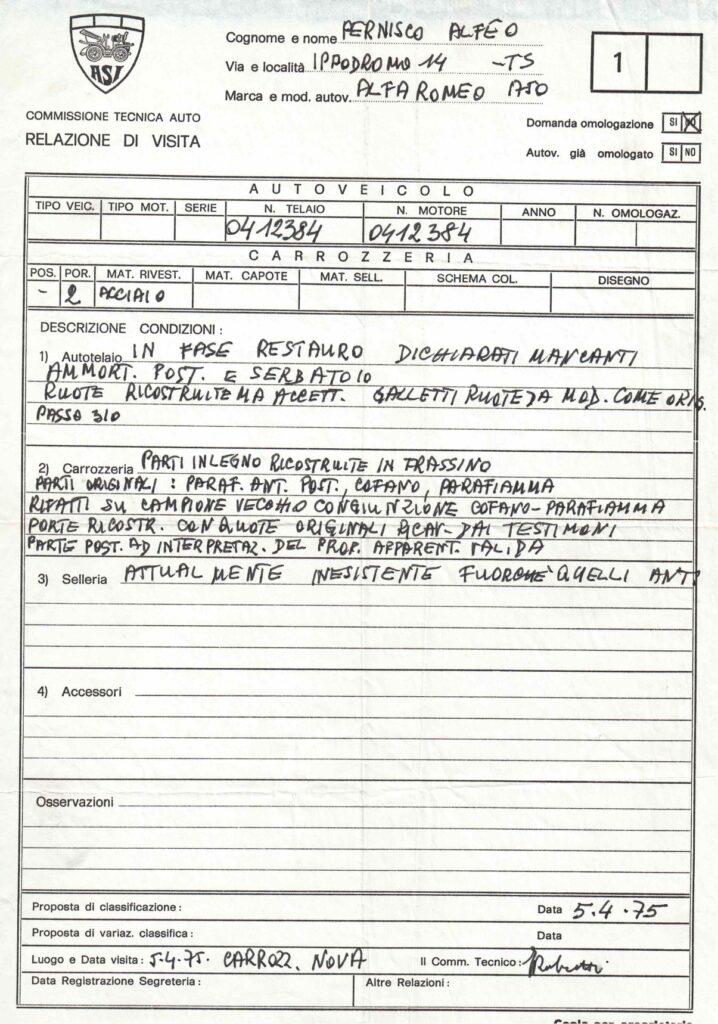 ASI
Cognome e nome PERNISCO ALFEO
Via e località IPPODROMO 14 - TS
Marca e mod. autov. ALFA ROMEO 1750
1
COMMISSIONE TECNICA AUTO
RELAZIONE DI VISITA
Domanda omologazione SI NO
Autov. già omologato SI NO
AUTOVEICOLO
TIPO VEIC. TIPO MOT. SERIE N. TELAIO N. MOTORE ANNO N. OMOLOGAZ.
0412384 0412384
CARROZZERIA
POS. POR. MAT. RIVEST. MAT. CAPOTE MAT. SELL. SCHEMA COL. DISEGNO
- 2 ACCIAIO
DESCRIZIONE CONDIZIONI :
1) Autotelaio IN FASE RESTAURO DICHIARATI MANCANTI
AMMORT. POST. E SERBATOIO
RUOTE RICOSTRUITE MA ACCETT. GALLETTI RUOTE DA MOD. COME ORIG.
PASSO 310
2) Carrozzeria PARTI IN LEGNO RICOSTRUITE IN FRASSINO
PARTI ORIGINALI : PARAF. ANT. POST., COFANO, PARAFIAMMA
RIFATTI SU CAMPIONE VECCHIO CONGIUNZIONE COFANO-PARAFIAMMA
PORTE RICOSTR. CON QUOTE ORIGINALI RICAV. DAI TESTIMONI
PARTE POST. AD INTERPRETAZ. DEL PROP. APPARENT. VALIDA
3) Selleria ATTUALMENTE INESISTENTE FUORCHÈ QUELLI ANT.
4) Accessori
Osservazioni
Proposta di classificazione : Data 5.4.75
Proposta di variaz. classifica : Data
Luogo e Data visita : 5.4.75. CARROZZ. NOVA Il Comm. Tecnico :
Data Registrazione Segreteria : Altre Relazioni :